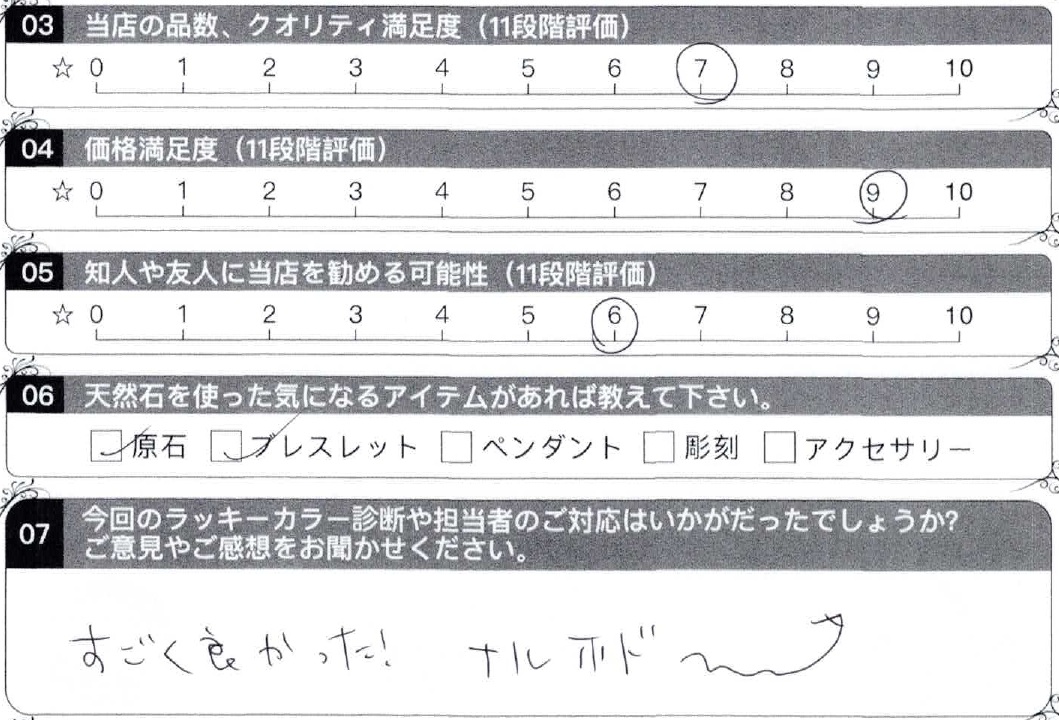 03 当店の品数、クオリティ満足度（11段階評価）
☆ 0 1 2 3 4 5 6 7 8 9 10
04 価格満足度（11段階評価）
☆ 0 1 2 3 4 5 6 7 8 9 10
05 知人や友人に当店を勧める可能性（11段階評価）
☆ 0 1 2 3 4 5 6 7 8 9 10
06 天然石を使った気になるアイテムがあれば教えて下さい。
原石 ブレスレット ペンダント 彫刻 アクセサリー
07 今回のラッキーカラー診断や担当者のご対応はいかがだったでしょうか?
ご意見やご感想をお聞かせください。
すごく良かった! ナルホド